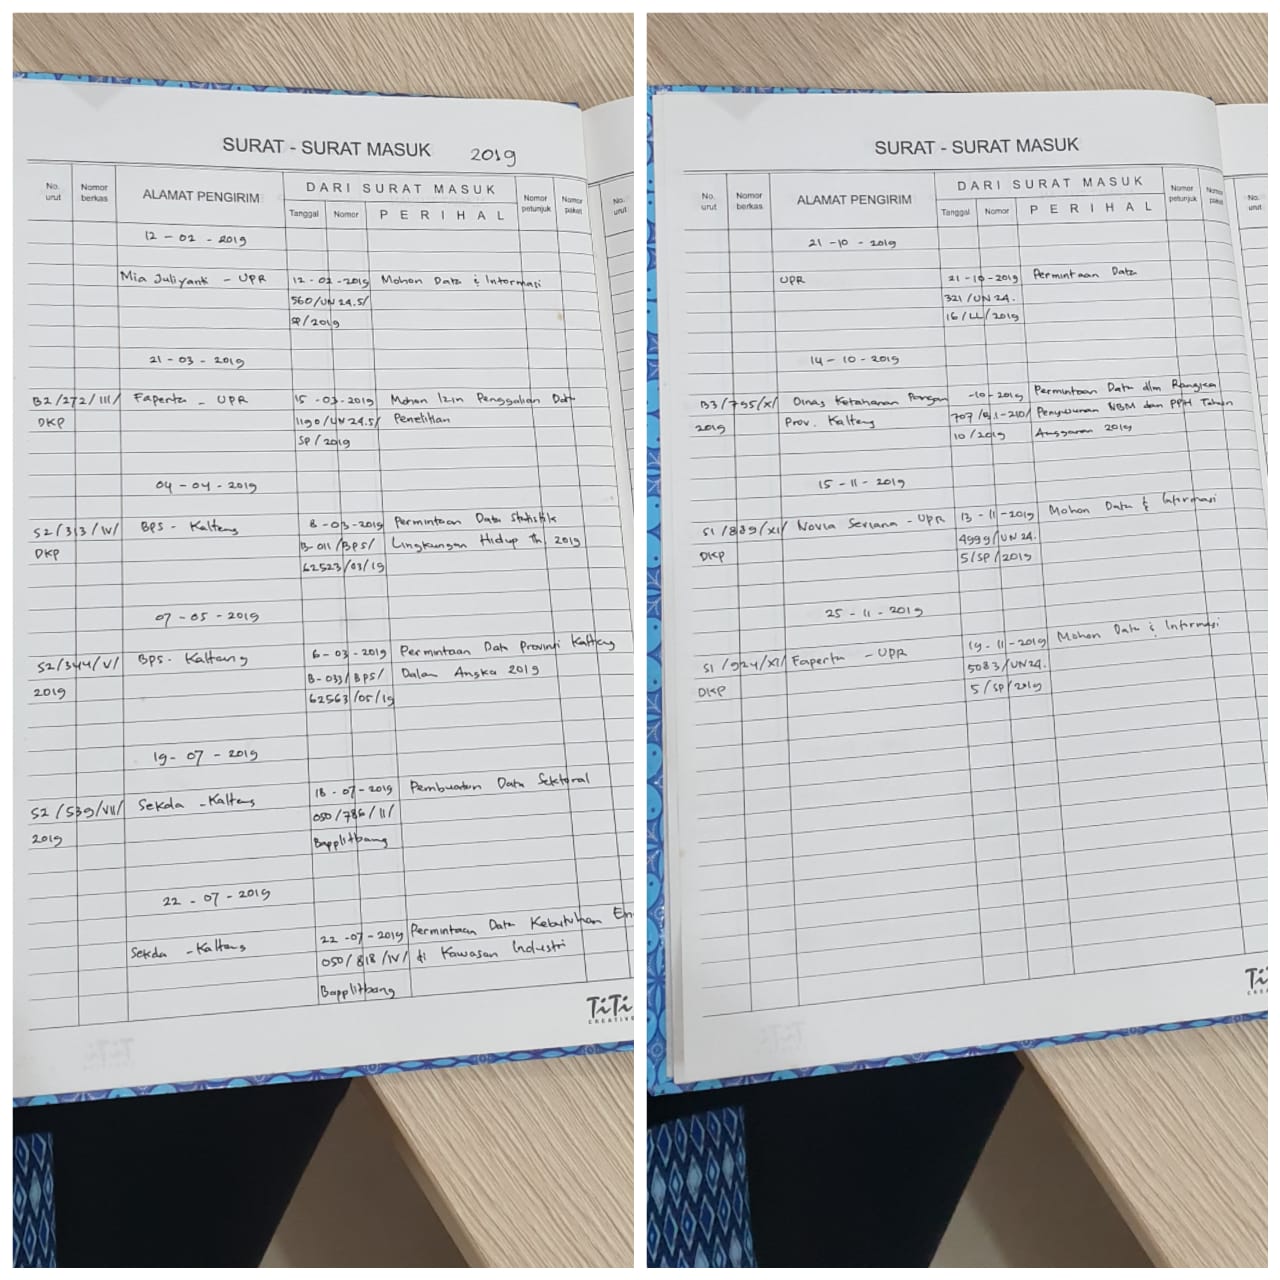 SURAT - SURAT MASUK 2019
No. urut
Nomor berkas
ALAMAT PENGIRIM
DARI SURAT MASUK
Tanggal
Nomor
PERIHAL
Nomor petunjuk
Nomor paket
No. urut
12 - 02 - 2019
Mia Juliyanti - UPR 12 - 02 - 2019 Mohon Data & Informasi
560/UN 24.5/
SP/2019
21 - 03 - 2019
B2/272/III/ Faperta - UPR 15 - 03 - 2019 Mohon Izin Penggalian Data
DKP 1190/UN 24.5/ Penelitian
SP/2019
04 - 04 - 2019
S2/313/IV/ BPS - Kalteng 8 - 03 - 2019 Permintaan Data Statistik
DKP B-011/BPS/ Lingkungan Hidup Th 2019
62523/03/19
07 - 05 - 2019
S2/344/V/ BPS - Kalteng 6 - 03 - 2019 Permintaan Data Provinsi Kalteng
2019 B-033/BPS/ Dalam Angka 2019
62563/05/19
19 - 07 - 2019
S2/539/VII/ Sekda - Kalteng 18 - 07 - 2019 Pembuatan Data Sektoral
2019 050/786/II/
Bapplitbang
22 - 07 - 2019
Sekda - Kalteng 22 - 07 - 2019 Permintaan Data Kebutuhan En
050/818/IV/ di Kawasan Industri
Bapplitbang
TiTi
CREATIVE
SURAT - SURAT MASUK
No. urut
Nomor berkas
ALAMAT PENGIRIM
DARI SURAT MASUK
Tanggal
Nomor
PERIHAL
Nomor petunjuk
Nomor paket
No. urut
21 - 10 - 2019
UPR 21 - 10 - 2019 Permintaan Data
321/UN 24.
16/LL/2019
14 - 10 - 2019
B3/795/X/ Dinas Ketahanan Pangan -10 - 2019 Permintaan Data dlm Rangka
2019 Prov. Kalteng Penyusunan NBM dan PPH Tahun
10/2019 Anggaran 2019
15 - 11 - 2019
S1/889/XI/ Novia Seriana - UPR 13 - 11 - 2019 Mohon Data & Informasi
DKP 4999/UN 24.
5/SP/2019
25 - 11 - 2019
S1/924/XI/ Faperta - UPR 19 - 11 - 2019 Mohon Data & Informasi
DKP 5083/UN24.
5/SP/2019